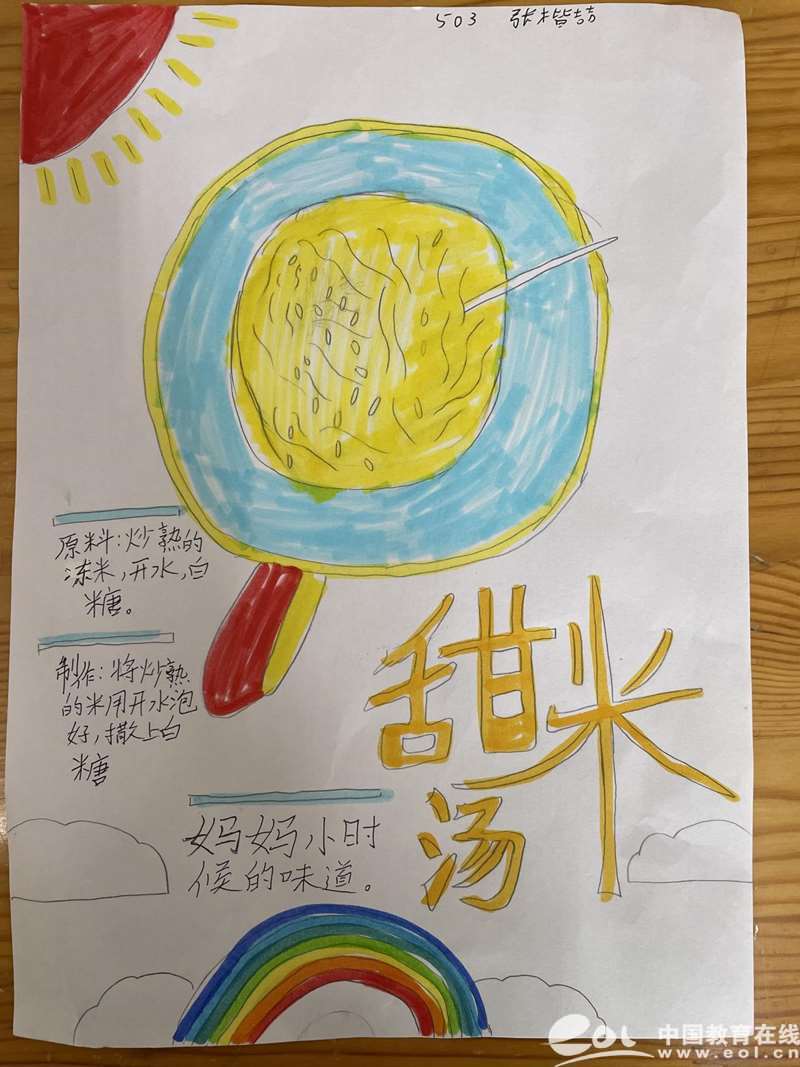 503 张楷喆
原料：炒熟的
冻米，开水，白
糖。
制作：将炒熟
的米用开水泡
好，撒上白
糖
甜米
汤
妈妈小时
候的味道。
eol 中国教育在线
www.eol.cn